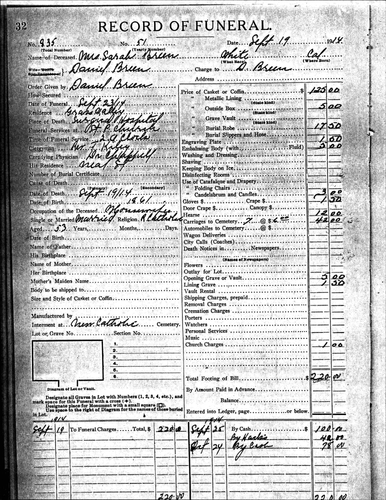 32 RECORD OF FUNERAL.
No. 835 No. 51 Date Sept 19 1914
(Total Number) (Yearly Number)
Name of Deceased Mrs Sarah Breen White Cal
(What Race) (Where Born)
Daniel Breen Charge to D. Breen
Address
Order Given by Daniel Breen
How Secured
Date of Funeral Sept 22/14
Residence Grass Valley
Place of Death Hospital
Funeral Services at Church
Time of Funeral Service
Clergyman
Certifying Physician Dr.
His Residence
Number of Burial Certificate
Cause of Death
Date of Death Sept 19/14
Date of Birth 1861
Occupation of the Deceased Housewife
Single or Married Married Religion R Catholic
Aged 53 Years, Months, Days
Date of Birth
Name of Father
His Birthplace
Name of Mother
Her Birthplace
Mother's Maiden Name
Body to be shipped to
Size and Style of Casket or Coffin
Manufactured by
Interment at New Catholic Cemetery.
Lot or Grave No. Section No.
1.
2.
3.
4.
5.
Diagram of Lot or Vault.
Designate all Graves in Lot with Numbers (1, 2, 3, 4, etc.), and mark space for this Funeral with a cross (+).
Designate place for Monument with a small square
Use space in the right of Diagram for the names of those buried in Lot.
Price of Casket or Coffin $ 125 00
Metallic Lining
Outside Box 5 00
Grave Vault
Burial Robe 17 50
Burial Slippers and Hose
Engraving Plate
Embalming Body (with Fluid)
Washing and Dressing
Shaving
Keeping Body on Ice
Disinfecting Rooms
Use of Catafalque and Drapery
" Folding Chairs
" Candelabrum and Candles
Gloves $ Crape $
Door Crape $ Canopy $
Hearse
Carriages to Cemetery 7 @ $6.00 42 00
Automobiles to Cemetery @ $
Wagon Deliveries
City Calls (Coaches)
Death Notices in Newspapers
(Names of Newspapers)
Flowers
Outlay for Lot
Opening Grave or Vault 5 00
Lining Grave 1 50
Vault Rental
Shipping Charges, prepaid
Removal Charges
Cremation Charges
Porters
Watchers
Personal Services
Music
Church Charges 1 00
Total Footing of Bill, $ 220 00
By Amount Paid in Advance
Balance,
Entered into Ledger, page or below.
1914
Sept 19 To Funeral Charges Total, $ 220 00 Sept 25 By Cash $ 100 00
Oct 24 By Cash 75 00
220 00 220 00